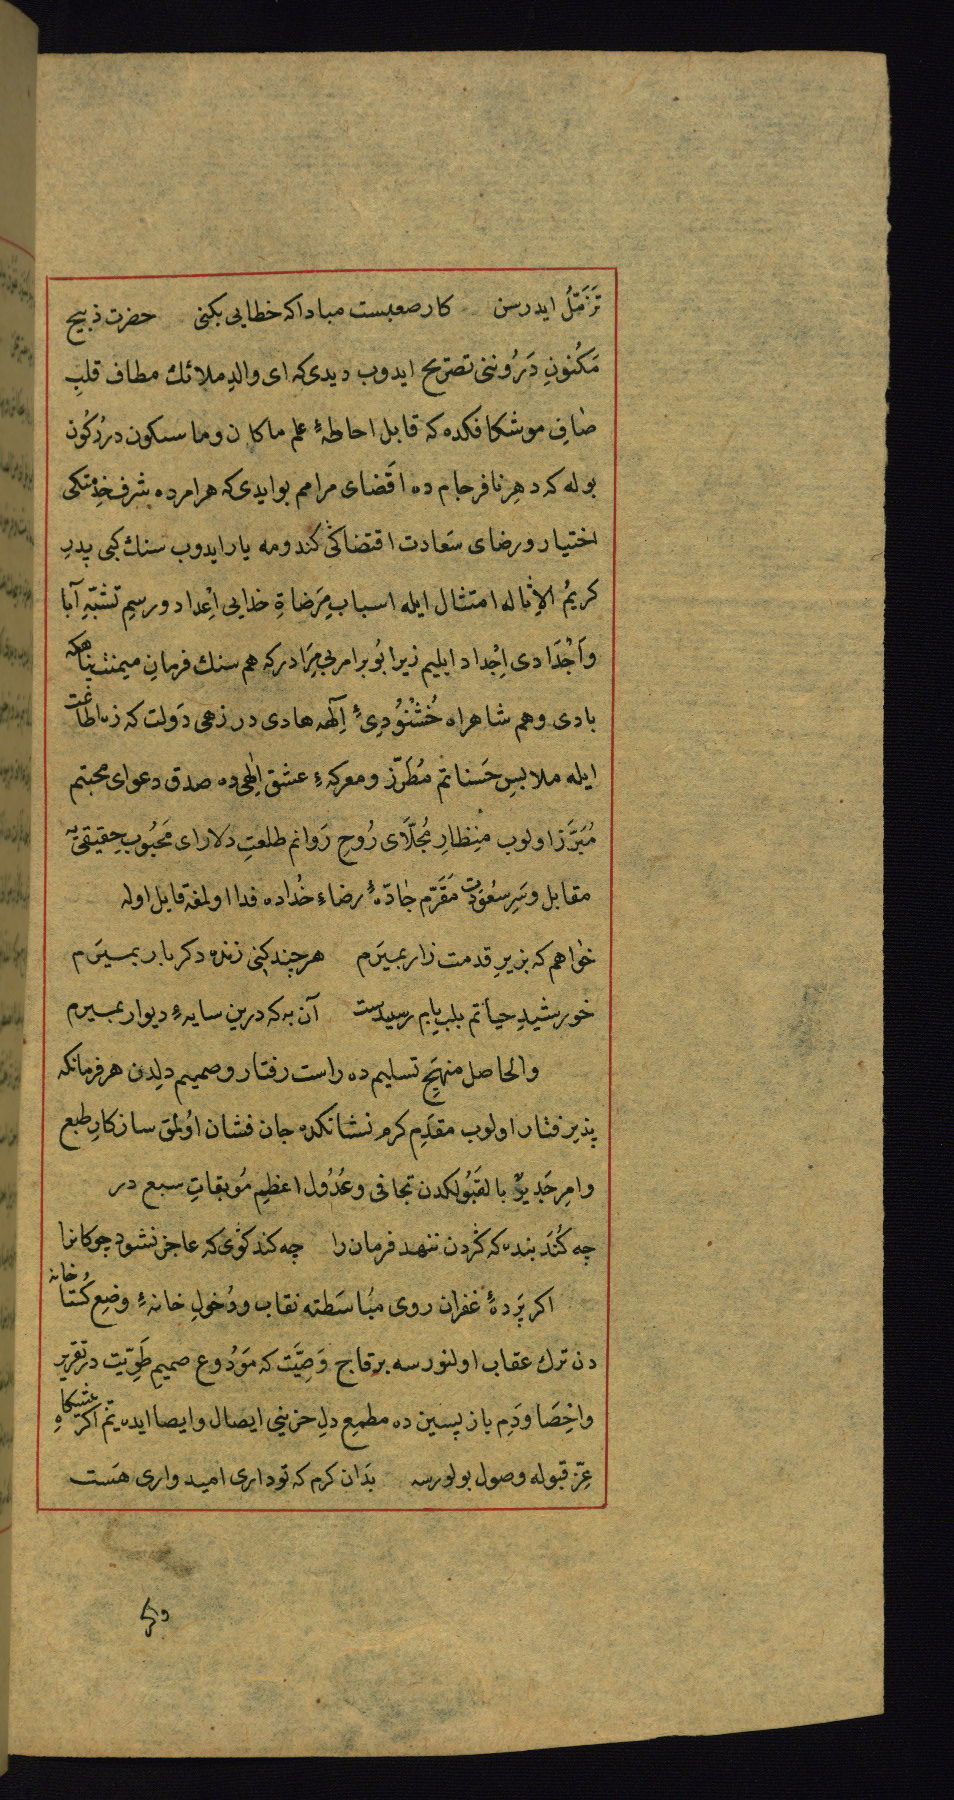 تَزَمّلُ ايدرسن كار صعبست مبادا كه خطايى بكنى حضرت ذبيح
مَكنُونِ دَرُوننى تصريح ايدوب ديدى كه اى والدِ ملائك مطاف قلبِ
صافِ موشكافكده كه قابل احاطهٔ علم ما كان وما سيكون در كُون
بوله كه دهرِ نافرجام ده اقَضاى مرامم بوايدى كه هر امرده شرف خِدمتكى
اختيار ورضاى سَعادت اقتضاكى كندومه يار ايدوب سنك كبى پدرِ
كريمُ الاِنَاله امتثال ايله اسبابِ مِرَضاةِ خدايى اِعداد ورسمِ تشبّهِ آبا
واَجْدَادى اِجْداد ايليم زيرا بُو بر امر بى مِرَادر كه هم سنك فرمانِ ميمنت پناهكه
بادى وهم شاهراه خُشْنُودِىِٔ اِلٓهه هادى در زهى دَولت كه زِ اطاعت
ايله ملابسِ حَسناتم مُطَرّز ومعركهٔ عشق اِلٰهى ده صدق دعواى محبتم
مُبَرَّز اولوب مِنظارِ مُجلّاى رُوحِ رَوانم طلعتِ دلاراى مَحبُوبِ حقيقى يه
مقابل وسَرِ سعُودت مَقَرّم جادّهٔ رضاءِ خُداده فدا اولمغه قابل اوله
خواهم كه بزيرِ قدمت زار بميرَم هر چند كنى زنده دكر بار بميرَم
خورشيدِ حياتم بلبِ بام رسيدست آن به كه درين سايهٔ ديوار بميرم
والحاصل منهجِ تسليم ده راست رفتار وصميم دلدن هر فرمانكه
پذيرفتار اولوب مقدَمِ كرم نشانكده جان فشان اوُلمق سازكارِ طبع
وامرِ جَديرٌ بالقَبُولكدن تجافى وعُدُول اعظمِ مُوبقاتِ سبع در
چه كُنَد بنده كه كردن ننهد فرمان را چه كند كوى كه عاجز نشود چوكانرا
اكر پَردهٔ غفران روى مبُاسَطته نقاب ودُخولِ خانهٔ وضعِ كُستاخانه
دن ترك عقاب اولنورسه بر قاج وَصِيَّت كه مَوْدُوع صميمِ طَوِيّت در تقرير
واِخِصَا ودَمِ باز پسين ده مطمعِ دلِ حزينى ايصال وايصا ايده يم اكر عتبكاهِ
عِزِّ قبوله وصول بولورسه بدَان كرم كه تو دارى اميدوارى هَست